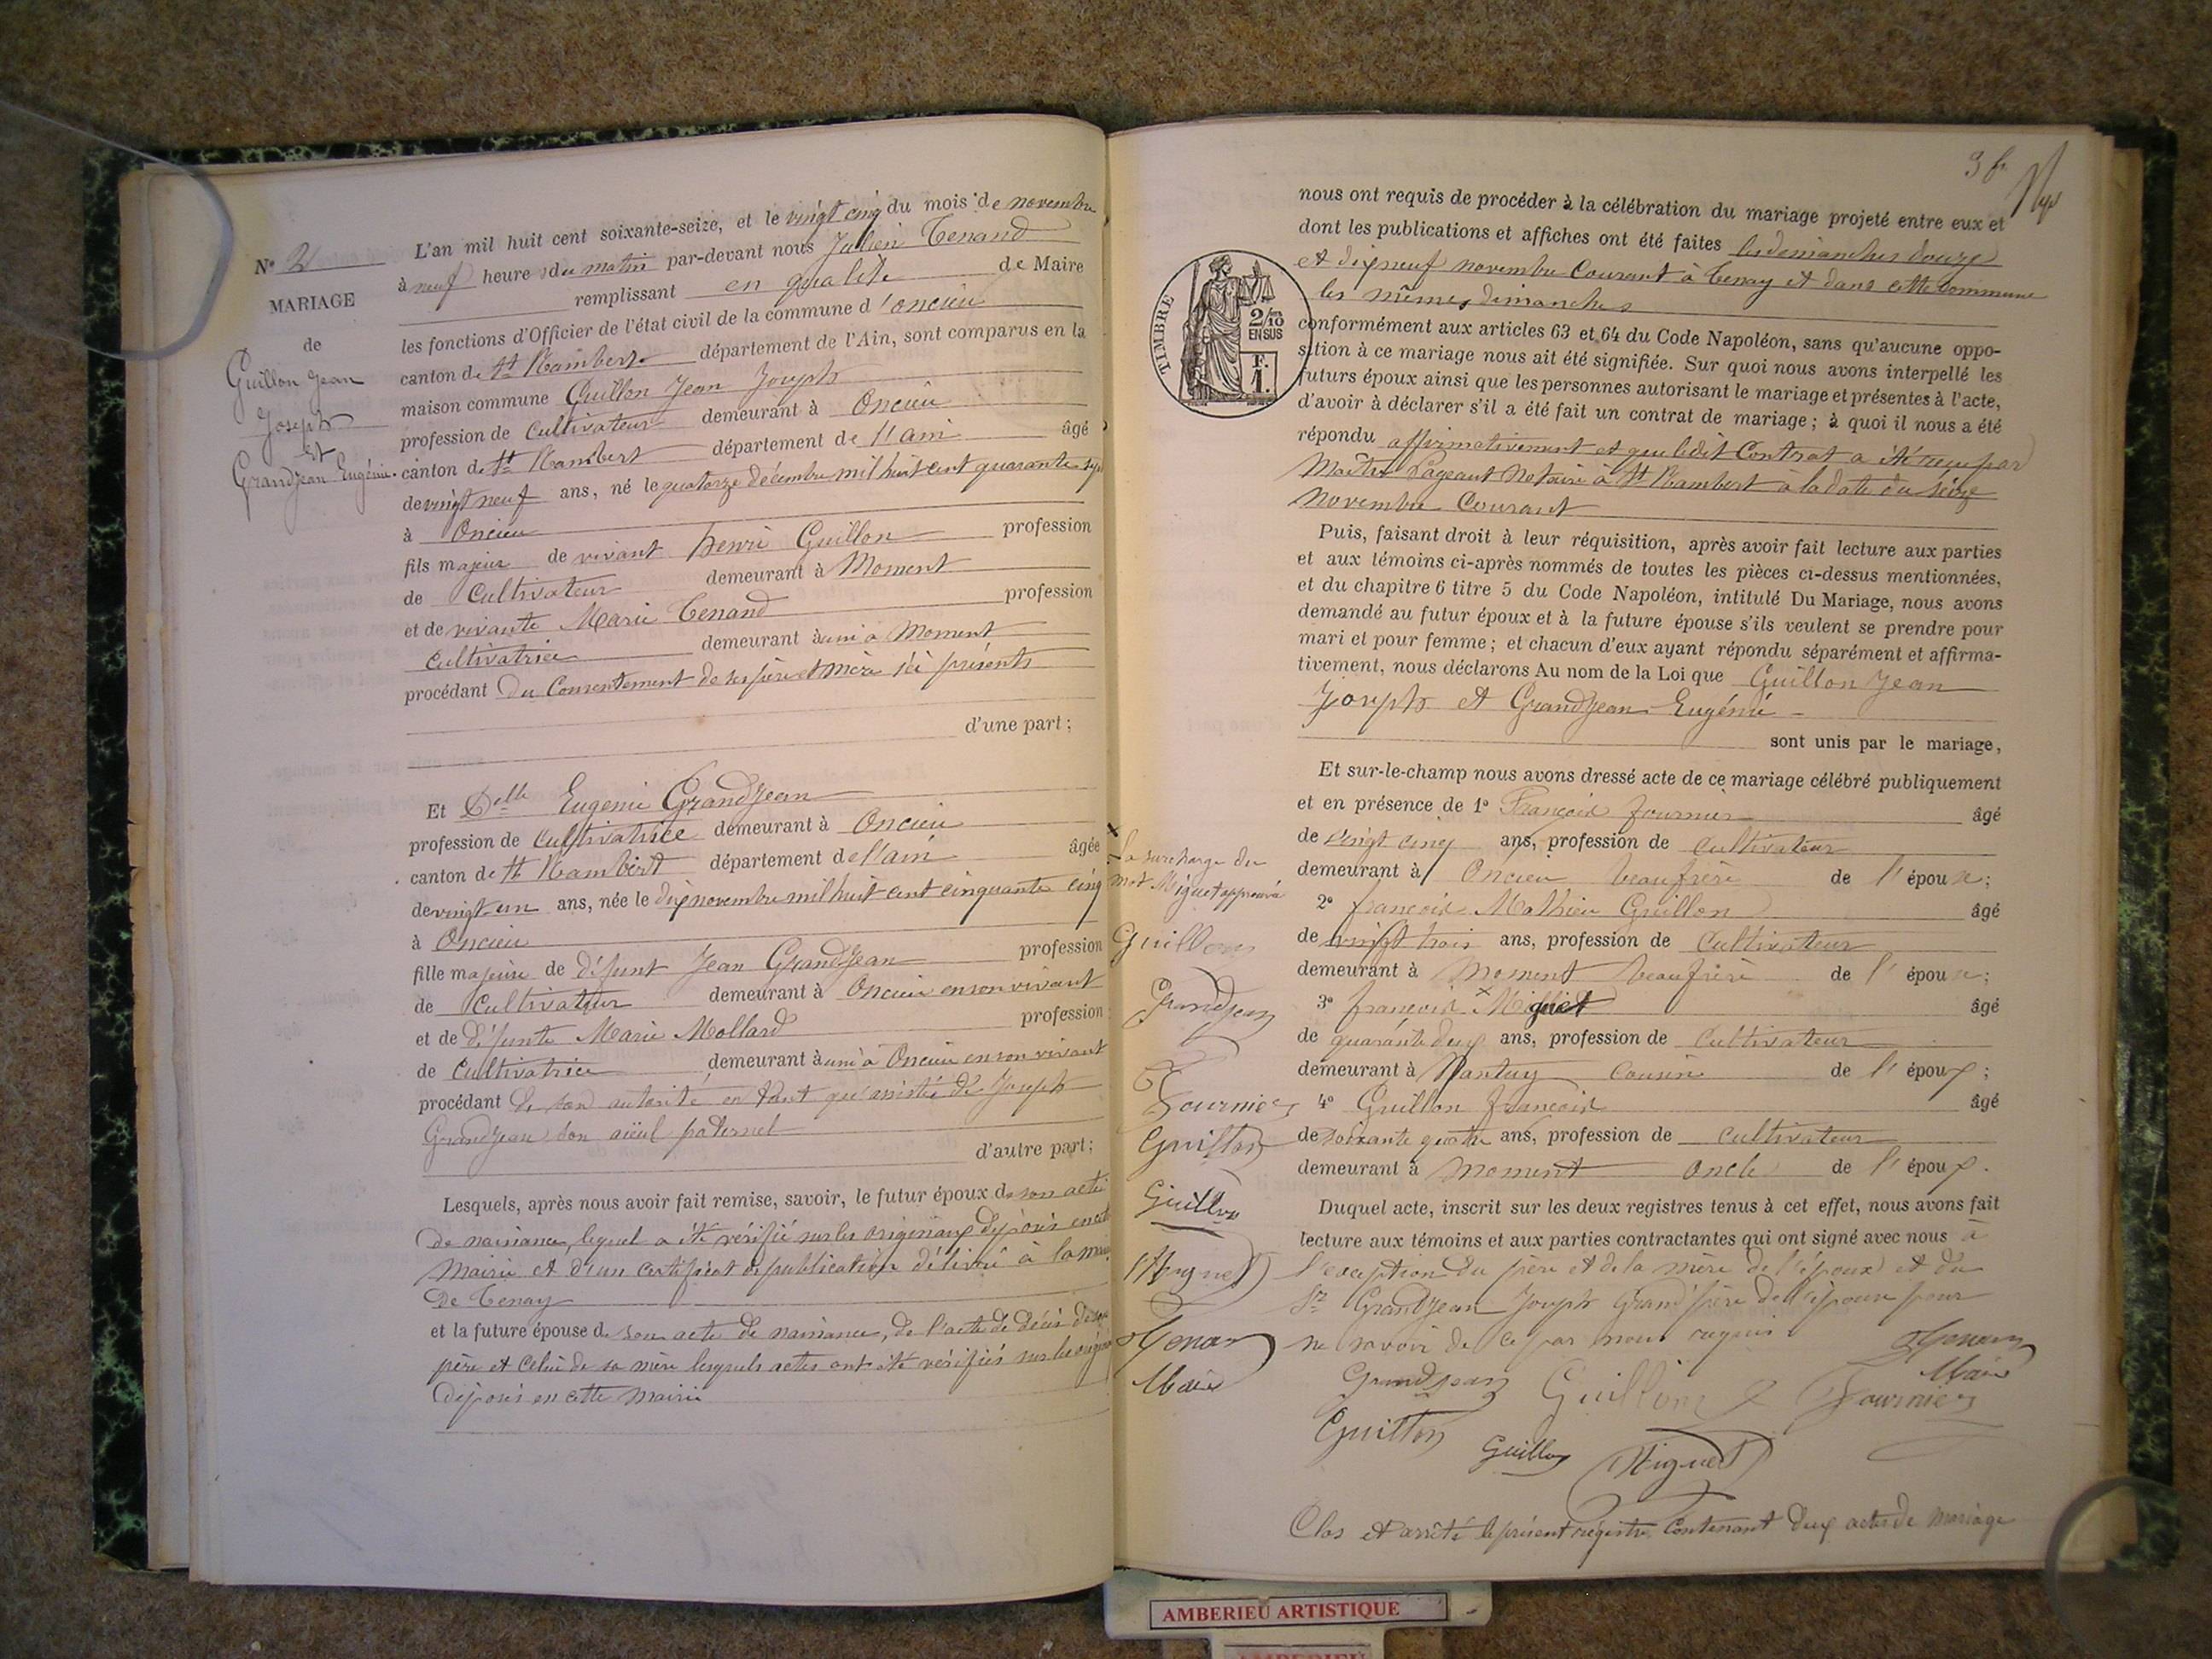 N° 2
MARIAGE
de
Guillon Jean
Joseph
et
Grandjean Eugénie.
L'an mil huit cent soixante-seize, et le vingt cinq du mois de novembre
à neuf heure du matin par-devant nous Julien Tenand
remplissant en qualité de Maire
les fonctions d'Officier de l'état civil de la commune d'oncieu
canton de St Rambert département de l'Ain, sont comparus en la
maison commune Guillon Jean Joseph
profession de cultivateur demeurant à Oncieu
canton de St Rambert département de l'ain âgé
de vingt neuf ans, né le quatorze décembre mil huit cent quarante sept
à Oncieu
fils majeur de vivant henri Guillon profession
de Cultivateur demeurant à Moment
et de vivante Marie Tenand profession
cultivatrice demeurant à Moment
procédant du Consentement de ses père et mère ici présents
d'une part;
Et Delle Eugenie Grandjean
profession de cultivatrice demeurant à Oncieu
canton de St Rambert département de l'ain âgée
de vingt un ans, née le dix novembre mil huit cent cinquante cinq
à Oncieu
fille majeure de défunt Jean Grandjean profession
de Cultivateur demeurant à Oncieu en son vivant
et de défunte Marie Mollard profession
de Cultivatrice demeurant à Oncieu en son vivant
procédant de son autorité en tant qu'assistée de Joseph
Grandjean son aïeul paternel
d'autre part;
Lesquels, après nous avoir fait remise, savoir, le futur époux de son acte
de naissance, lequel a été vérifié sur les originaux déposés en cette
Mairie et d'un certificat de publication délivré à la mairie
de Tenay
et la future épouse d. son acte de naissance, de l'acte de décès de son
père et celui de sa mère lesquels actes ont été vérifiés sur les originaux
déposés en cette mairie
nous ont requis de procéder à la célébration du mariage projeté entre eux et
dont les publications et affiches ont été faites les dimanches douze
et dix neuf novembre Courant à Tenay et dans cette Commune
les mêmes dimanches
TIMBRE
2/10
EN SUS
F.
1.
conformément aux articles 63 et 64 du Code Napoléon, sans qu'aucune oppo-
sition à ce mariage nous ait été signifiée. Sur quoi nous avons interpellé les
futurs époux ainsi que les personnes autorisant le mariage et présentes à l'acte,
d'avoir à déclarer s'il a été fait un contrat de mariage; à quoi il nous a été
répondu affirmativement et que ledit Contrat a été reçu par
Maître Lageant Notaire à St Rambert à la date du seize
Novembre Courant
Puis, faisant droit à leur réquisition, après avoir fait lecture aux parties
et aux témoins ci-après nommés de toutes les pièces ci-dessus mentionnées,
et du chapitre 6 titre 5 du Code Napoléon, intitulé Du Mariage, nous avons
demandé au futur époux et à la future épouse s'ils veulent se prendre pour
mari et pour femme; et chacun d'eux ayant répondu séparément et affirma-
tivement, nous déclarons Au nom de la Loi que Guillon Jean
Joseph et Grandjean Eugénie
sont unis par le mariage,
Et sur-le-champ nous avons dressé acte de ce mariage célébré publiquement
et en présence de 1° François fournier âgé
de vingt cinq ans, profession de cultivateur
demeurant à Oncieu beaufrère de l'épouse;
2° françois Mathieu Guillon âgé
de vingt trois ans, profession de Cultivateur
demeurant à Moment beaufrère de l'épouse;
3° françois × Miguet âgé
de quarante deux ans, profession de Cultivateur
demeurant à Nantuy Cousin de l'époux;
4° Guillon françois âgé
de soixante quatre ans, profession de cultivateur
demeurant à Moment Oncle de l'époux.
Duquel acte, inscrit sur les deux registres tenus à cet effet, nous avons fait
lecture aux témoins et aux parties contractantes qui ont signé avec nous à
l'exception du père et de la mère de l'époux et du
Sr Grandjean Joseph Grand'père de l'épouse pour
ne savoir de ce par nous requis
Tenand
Maire
Grandjean Guillon Fournier
Guillon Guillon Miguet
Clos et arrêté le présent registre Contenant deux actes de mariage
× La surcharge du
mot Miguet approuvé
Guillon
Grandjean
Fournier
Guillon
Guillon
Miguet
Tenand
Maire
AMBERIEU ARTISTIQUE
AMBERIEU